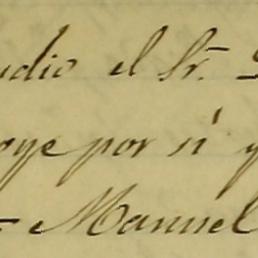 udio el Sr.
oye por si y
Manuel